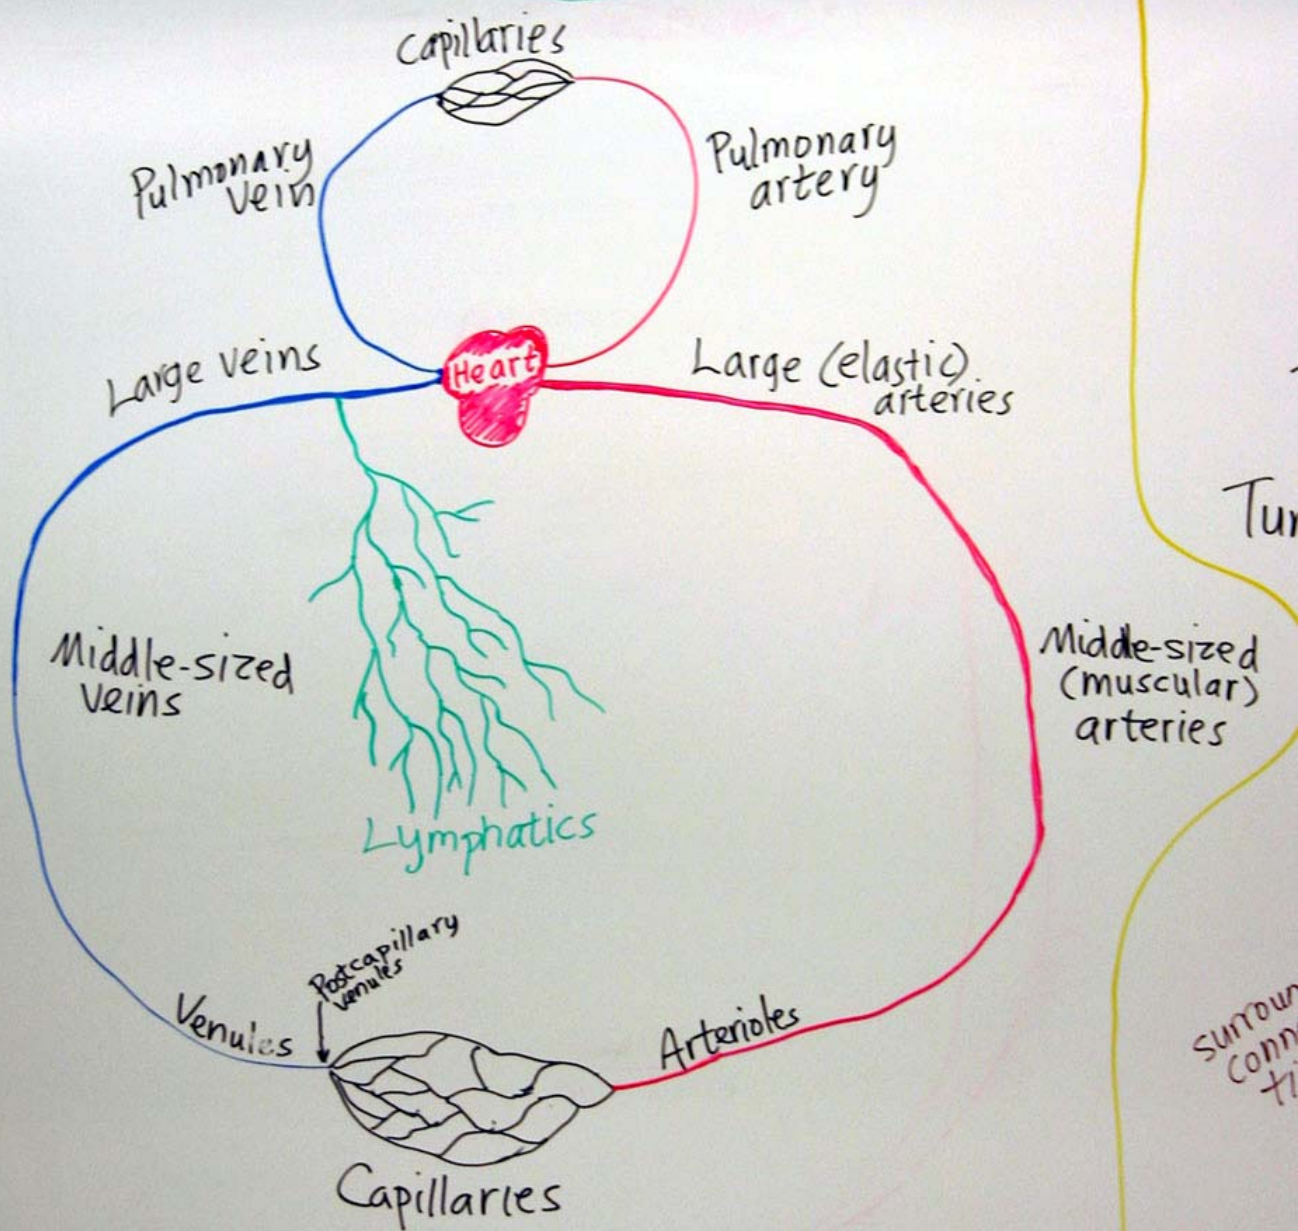 Capillaries
Pulmonary
vein
Pulmonary
artery
Large veins
Heart
Large (elastic)
arteries
Middle-sized
veins
Middle-sized
(muscular)
arteries
Lymphatics
Postcapillary
venules
Venules
Arterioles
Capillaries